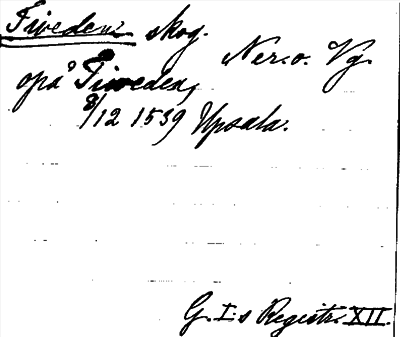 Tivedens skog.
Ner. o. Vg.
opå Tiweden,
8/12 1539 Upsala.
G. I:s Registr. XII.